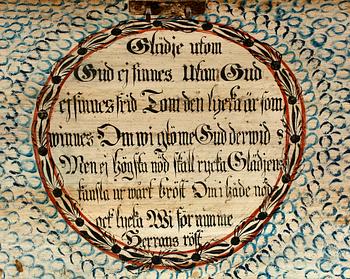 Glädje utom
Gud ej finnes Utan Gud
ej finnes frid Tom den lycka är som
winnes Om wi glöme Gud derwid
Men ej högsta nöd skall rycka Glädjens
känsla ur wårt bröst Om i både nöd
och lycka Wi förnimme
Herrans röst